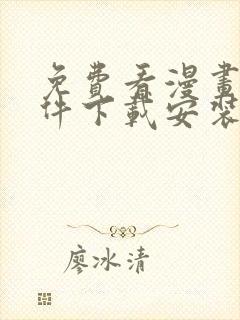 免費看漫畫
件下載安裝
廖冰清